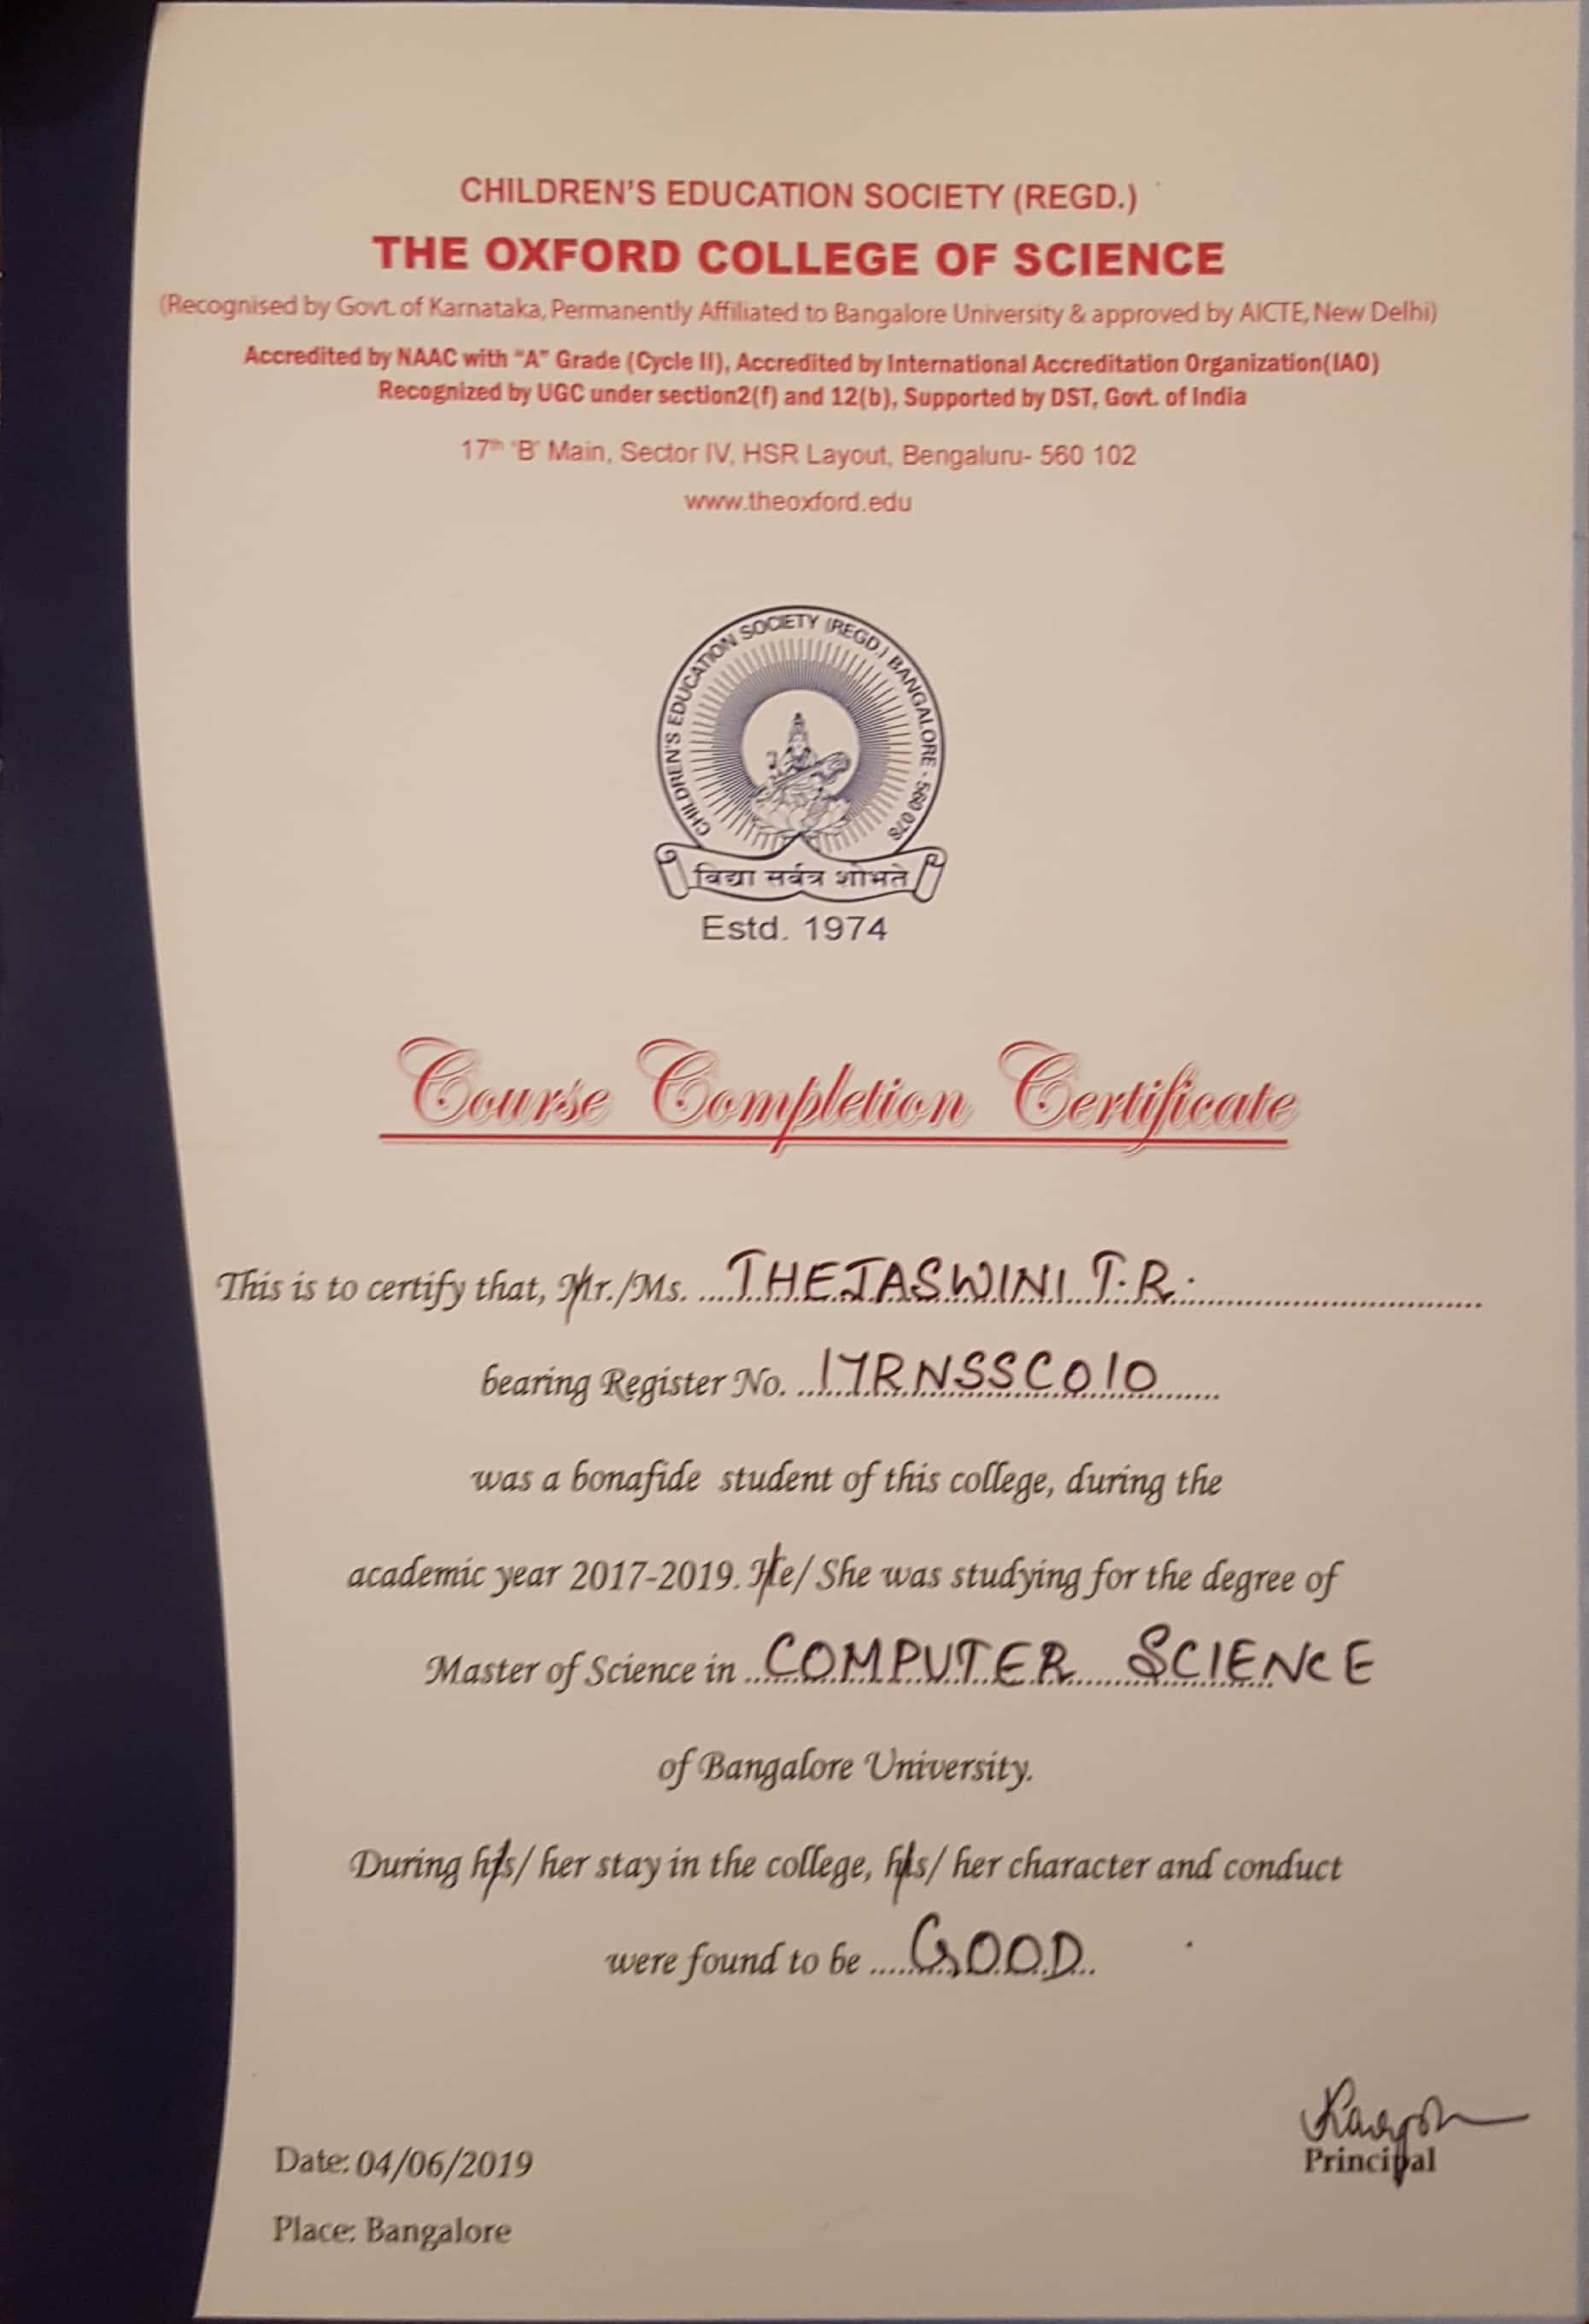 CHILDREN'S EDUCATION SOCIETY (REGD.)
THE OXFORD COLLEGE OF SCIENCE
(Recognised by Govt. of Karnataka, Permanently Affiliated to Bangalore University & approved by AICTE, New Delhi)
Accredited by NAAC with "A" Grade (Cycle II), Accredited by International Accreditation Organization(IAO)
Recognized by UGC under section2(f) and 12(b), Supported by DST, Govt. of India
17th 'B' Main, Sector IV, HSR Layout, Bengaluru- 560 102
www.theoxford.edu
CHILDREN'S EDUCATION SOCIETY (REGD.) BANGALORE - 560 078
विद्या सर्वत्र शोभते
Estd. 1974
Course Completion Certificate
This is to certify that, Mr./Ms. THEJASWINI T.R.
bearing Register No. 17RNSSC010
was a bonafide student of this college, during the
academic year 2017-2019. He/ She was studying for the degree of
Master of Science in COMPUTER SCIENCE
of Bangalore University.
During his/ her stay in the college, his/ her character and conduct
were found to be GOOD
Principal
Date: 04/06/2019
Place: Bangalore